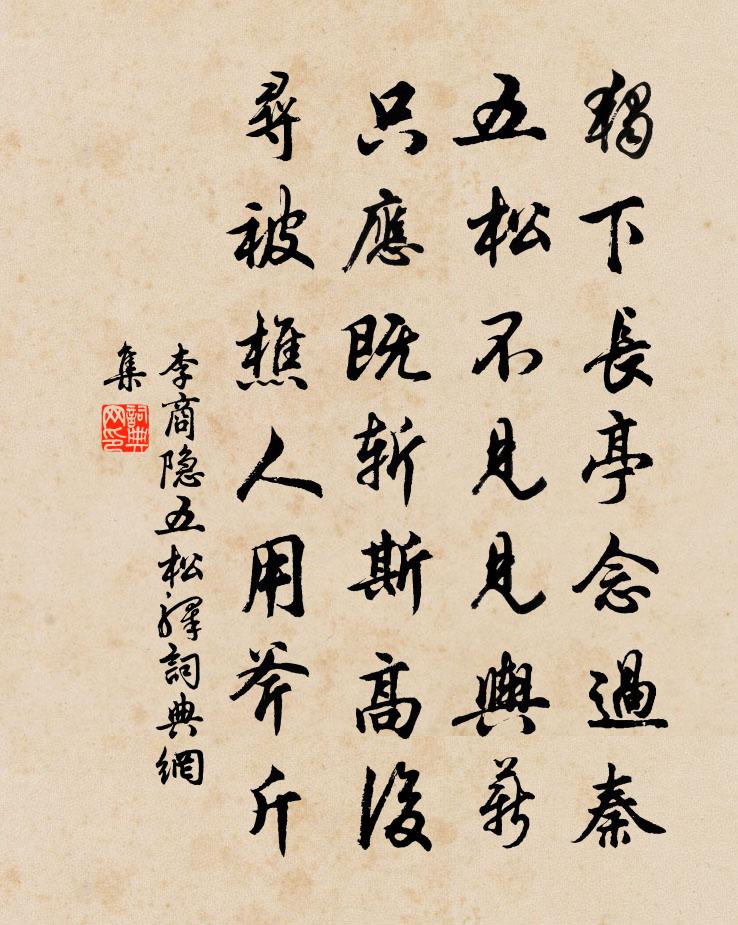 獨下長亭念過秦
五松不見見輿薪
只應既斬斯高後
尋被樵人用斧斤
李商隐五松驛詞典網
集
詞典
网印